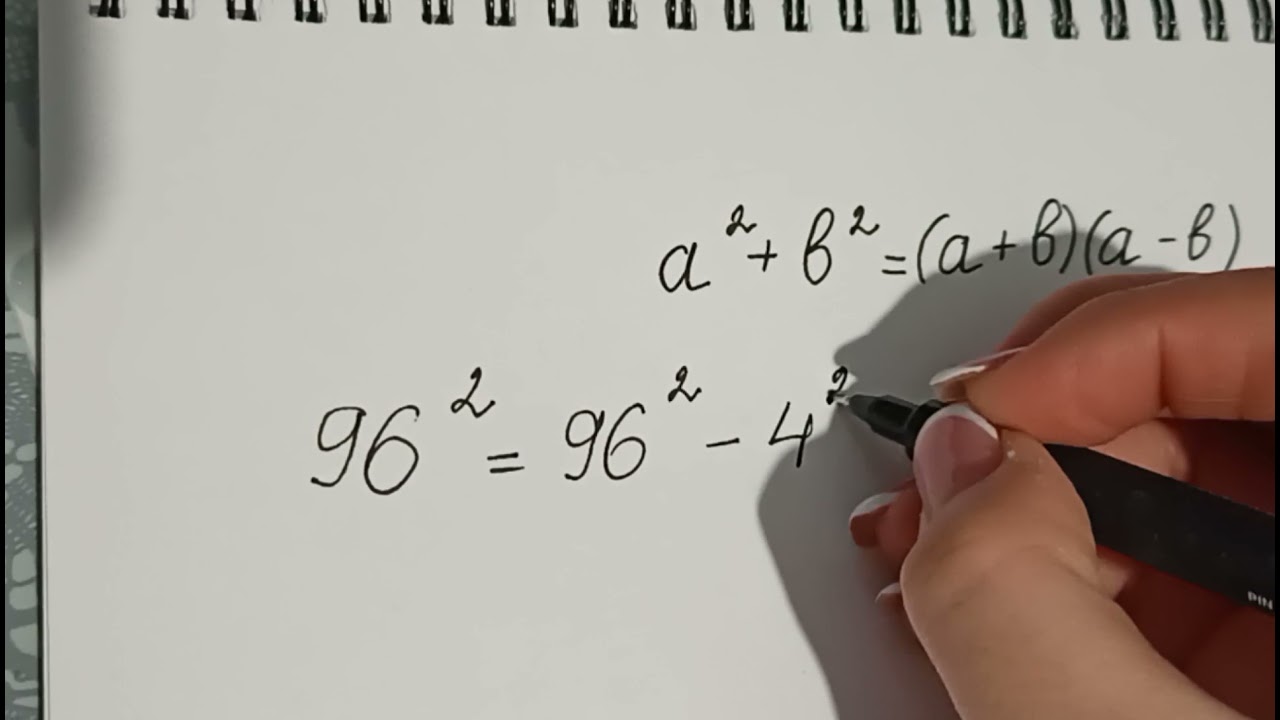 a² + b² = (a + b)(a - b)
96² = 96² - 4²
PIN